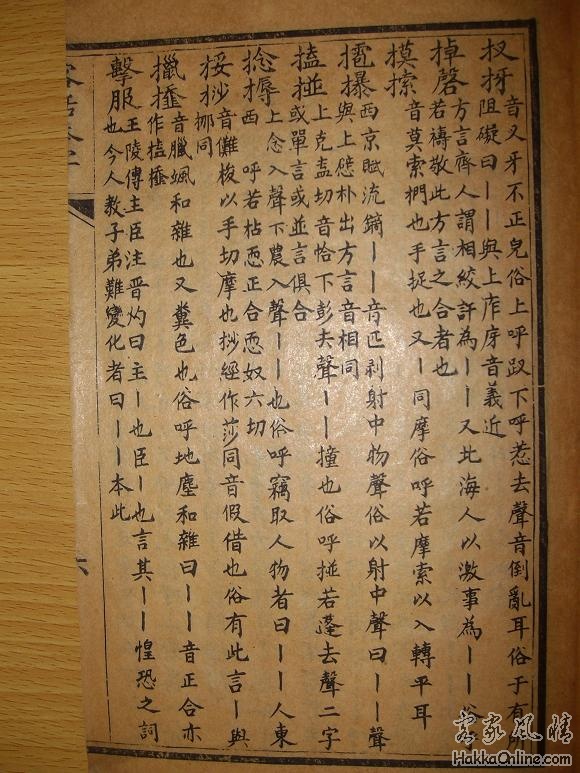 扠掗音叉牙不正皃俗上呼趿下呼惹去聲音倒亂耳俗于有
阻礙曰丨丨與上厏厊音義近
掉磬方言齊人謂相絞訐為丨丨又北海人以激事為丨丨俗
若禱敬此方言之合者也
摸索音莫索捫也手捉也又丨同摩俗呼若摩索以入轉平耳
西京賦流鏑丨丨音匹剥射中物聲俗以射中聲曰丨丨聲
與上朴出方言音相同
搕掽上克盍切音恰下彭去聲丨丨撞也俗呼掽若蓬去聲二字
或單言或並言俱合
捻搙上念入聲下農入聲丨丨也俗呼竊取人物者曰丨丨人東
西 呼若枯恧正合恧奴六切
挼抄音儺梭以手切摩也抄經作莎同音假借也俗有此言丨與
挪同
擸音臘颯和雜也又糞色也俗呼地塵和雜曰丨丨音正合亦
作
擊服王陵傳主臣注晉灼曰主丨也臣丨也言其丨丨惶恐之詞
也今人教子弟難變化者曰丨丨本此
六
客家風情
HakkaOnline.com